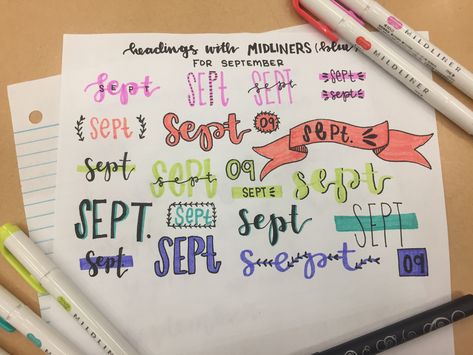 headings with MIDLINERS (blue)
FOR SEPTEMBER
sept SEPT
SEPT
sept
sept
sept
sept
sept
09
sept.
sept
sept
sept
09
SEPT
sept
SEPT.
sept
sept
SEPT
sept
SEPT
sept
09
MILDLINER
MILDLINER
MILDLINER
MILDLINER